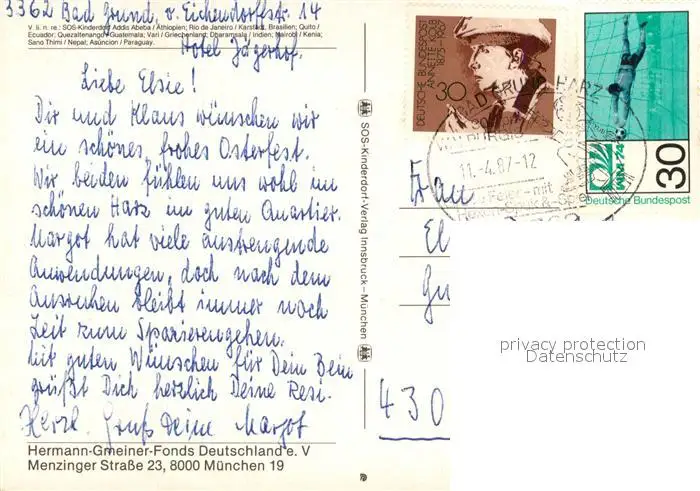 3362 Bad Grund, v. Eichendorfstr. 14
V. li. n. re.: SOS-Kinderdorf Addis Abeba / Äthiopien; Rio de Janeiro / Karstadt, Brasilien; Quito /
Ecuador; Quezaltenango/Guatemala; Vari / Griechenland; Dharamsala / Indien; Nairobi / Kenia;
Sano Thimi / Nepal; Asúncion / Paraguay.
Hotel Jägerhof.
Liebe Elsie!
Dir und Klaus wünschen wir
ein schönes, frohes Osterfest.
Wir beiden fühlen uns wohl im
schönen Harz im guten Quartier.
Margot hat viele anstrengende
Anwendungen, doch nach dem
Ausruhen bleibt immer noch
Zeit zum Spazierengehen.
Mit guten Wünschen für Dein Bein
grüßt Dich herzlich Deine Resi.
Herzl. Gruß Deine Margot
Hermann-Gmeiner-Fonds Deutschland e. V
Menzinger Straße 23, 8000 München 19
SOS-Kinderdorf-Verlag Innsbruck – München
DEUTSCHE BUNDESPOST
ANNETTE KOLB
1875-1967
30
BAD GRUND HARZ
11.-4.87-12
Feier mit
WM 74
30
Deutsche Bundespost
Frau
El
Gu
430
privacy protection
Datenschutz